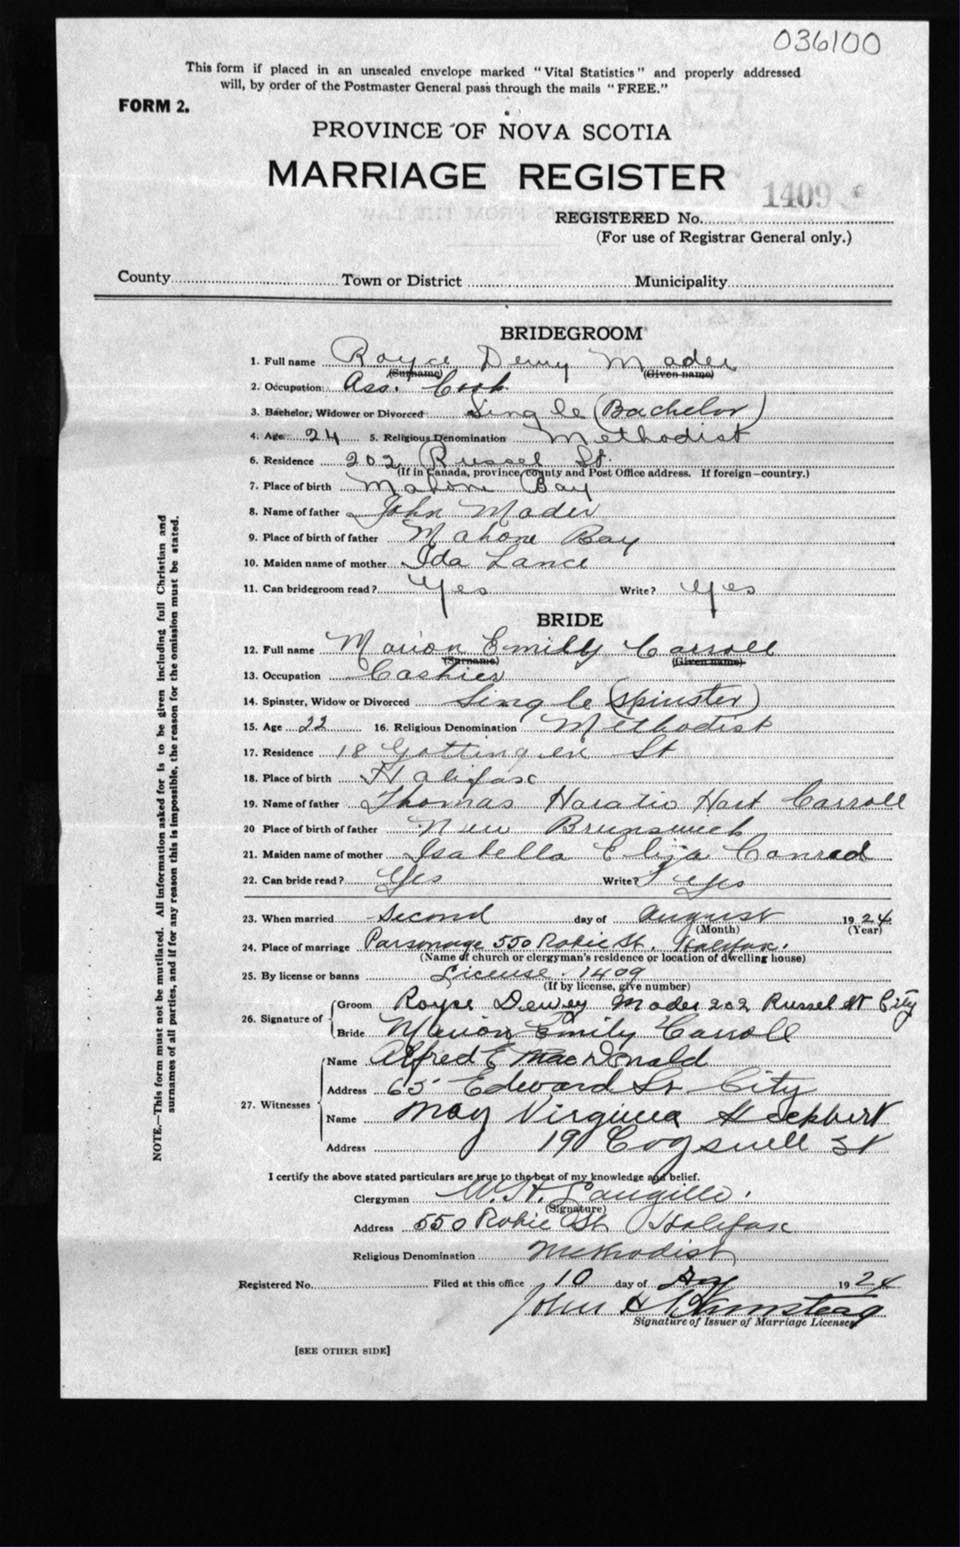 036100
This form if placed in an unsealed envelope marked "Vital Statistics" and properly addressed
will, by order of the Postmaster General pass through the mails "FREE."
FORM 2.
PROVINCE OF NOVA SCOTIA
MARRIAGE REGISTER
1409
REGISTERED No.
(For use of Registrar General only.)
County Town or District Municipality
BRIDEGROOM
1. Full name Royce Dewy Mader
(Surname) (Given name)
2. Occupation: Ass. Cook
3. Bachelor, Widower or Divorced Single (Bachelor)
4. Age 24 5. Religious Denomination Methodist
6. Residence 202 Russel St.
(If in Canada, province, county and Post Office address. If foreign—country.)
7. Place of birth Mahone Bay
8. Name of father John Mader
9. Place of birth of father Mahone Bay
10. Maiden name of mother Ida Lance
11. Can bridegroom read? Yes Write? Yes
BRIDE
12. Full name Marion Emilly Carroll
(Surname) (Given name)
13. Occupation Cashier
14. Spinster, Widow or Divorced Single (Spinster)
15. Age 22 16. Religious Denomination Methodist
17. Residence 18 Gottingen St
18. Place of birth Halifax
19. Name of father Thomas Horatio Hart Carroll
20 Place of birth of father New Brunswick
21. Maiden name of mother Isabella Eliza Conrad
22. Can bride read? Yes Write? Yes
23. When married Second day of August 1924
(Month) (Year)
24. Place of marriage Parsonage 550 Robie St. Halifax.
(Name of church or clergyman's residence or location of dwelling house)
25. By license or banns License 1409
(If by license, give number)
26. Signature of Groom Royce Dewey Mader 202 Russel St City
Bride Marion Emily Carroll
27. Witnesses Name Alfred E MacDonald
Address 65 Edward St City
Name May Virginia
Address 190 Cogswell St
I certify the above stated particulars are true to the best of my knowledge and belief.
Clergyman W. H. Langille.
(Signature)
Address 550 Robie St Halifax
Religious Denomination Methodist
Registered No. Filed at this office 10 day of 1924
John H
Signature of Issuer of Marriage Licenses
[SEE OTHER SIDE]
NOTE.—This form must not be mutilated. All information asked for is to be given including full Christian and
surnames of all parties, and if for any reason this is impossible, the reason for the omission must be stated.